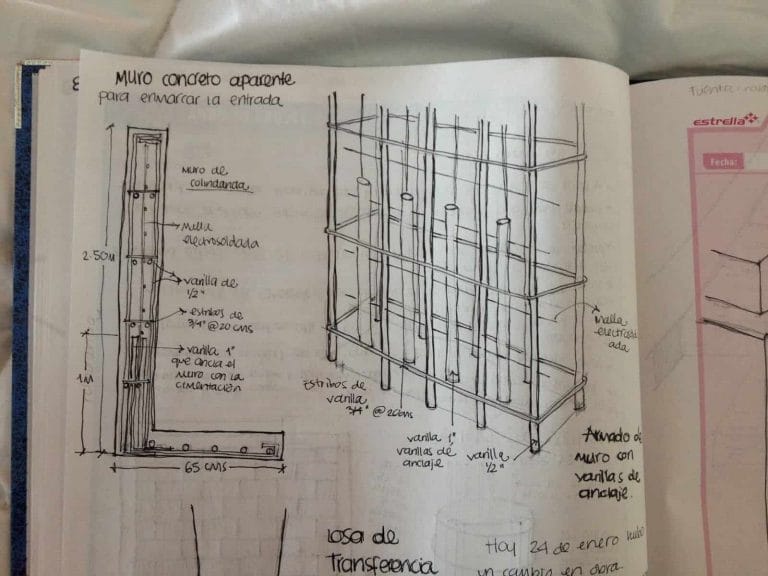 MURO CONCRETO APARENTE
para enmarcar la entrada
2.50M
1M
65 cms
MURO DE
COLINDANCIA
Malla
electrosoldada
varilla de
1/2"
estribos de
3/4" @ 20 cms
varilla 1"
que ancla el
MURO CON LA
CIMENTACIÓN
Estribos de
varilla
3/4" @ 20cms
varilla 1"
varillas de
anclaje
varilla
1/2"
Malla
electrosold
ada
ARMADO de
MURO CON
VARILLAS DE
anclaje.
LOSA DE
TRANSFERENCIA
Hoy 24 de enero hubo
un cambio en obra.
estrella
Fecha: